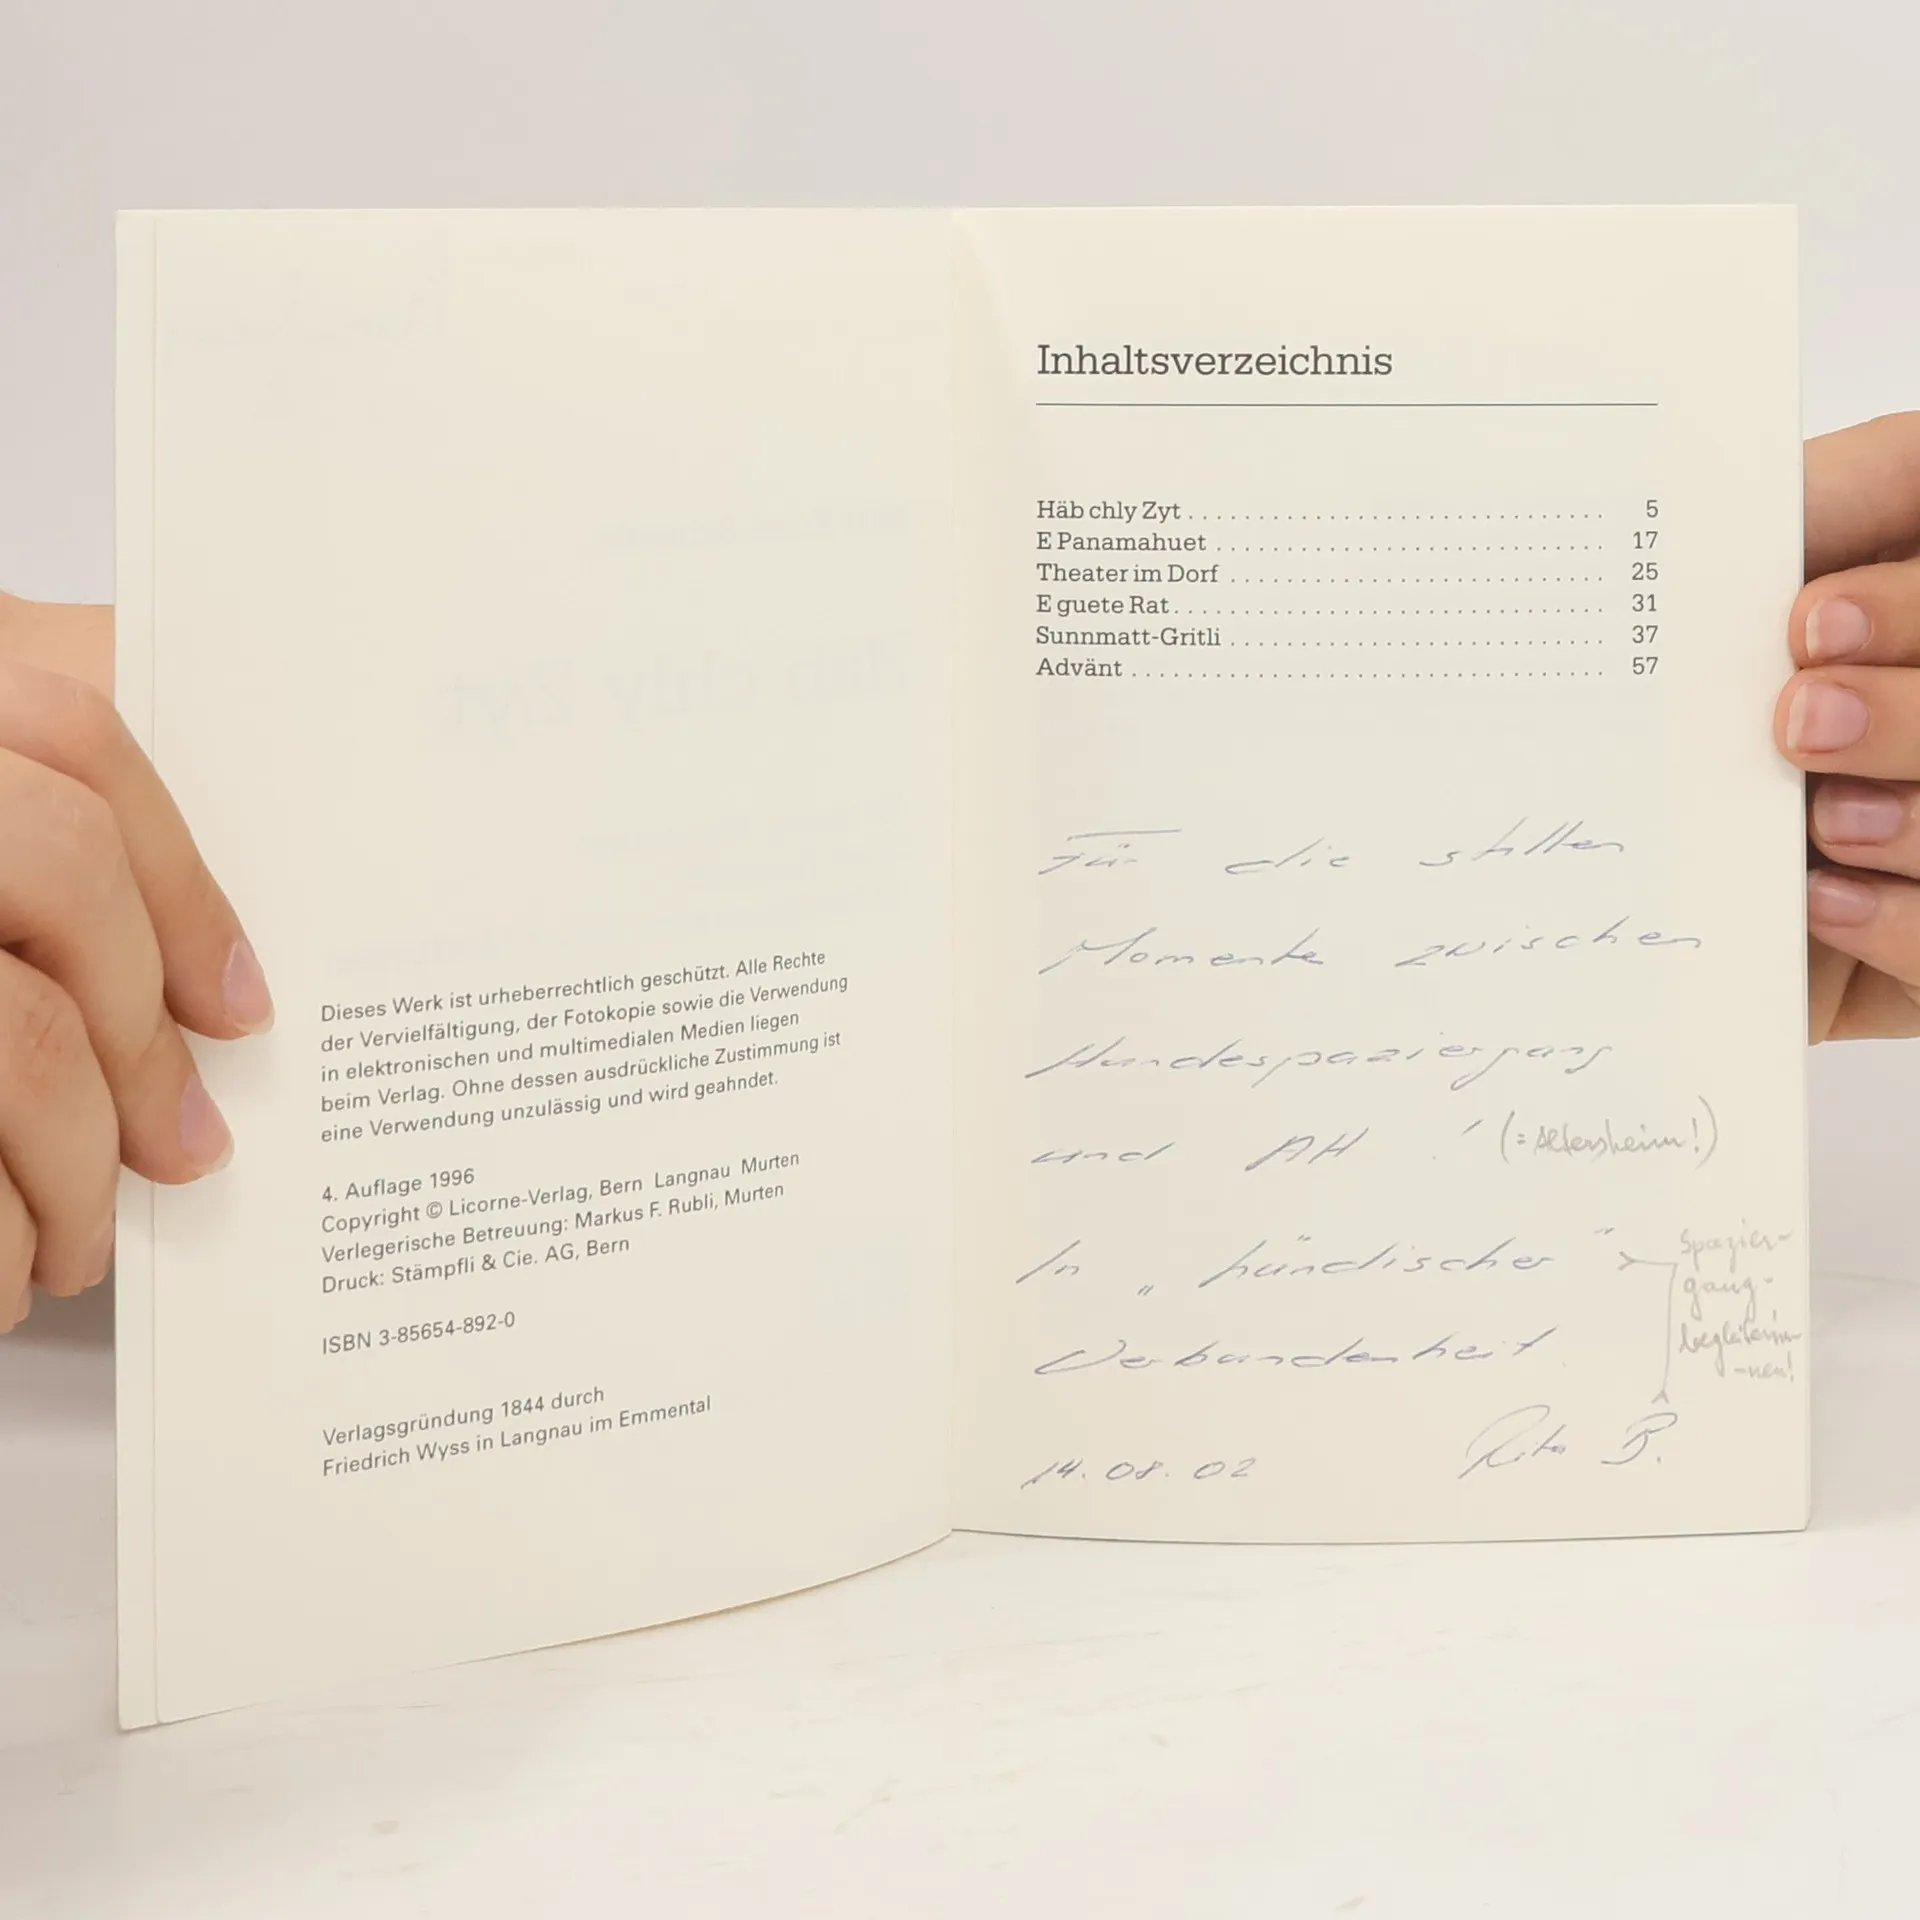 Dieses Werk ist urheberrechtlich geschützt. Alle Rechte
der Vervielfältigung, der Fotokopie sowie die Verwendung
in elektronischen und multimedialen Medien liegen
beim Verlag. Ohne dessen ausdrückliche Zustimmung ist
eine Verwendung unzulässig und wird geahndet.
4. Auflage 1996
Copyright © Licorne-Verlag, Bern Langnau Murten
Verlegerische Betreuung: Markus F. Rubli, Murten
Druck: Stämpfli & Cie. AG, Bern
ISBN 3-85654-892-0
Verlagsgründung 1844 durch
Friedrich Wyss in Langnau im Emmental
Inhaltsverzeichnis
Häb chly Zyt . . . . . . . . . . . . . . . . . . . . . . . . . . . . . . 5
E Panamahuet . . . . . . . . . . . . . . . . . . . . . . . . . . . . 17
Theater im Dorf . . . . . . . . . . . . . . . . . . . . . . . . . . . 25
E guete Rat . . . . . . . . . . . . . . . . . . . . . . . . . . . . . . . 31
Sunnmatt-Gritli . . . . . . . . . . . . . . . . . . . . . . . . . . . 37
Advänt . . . . . . . . . . . . . . . . . . . . . . . . . . . . . . . . . . 57
Für die stillen
Momente zwischen
Hundespaziergang
und AH ! (= Altersheim!)
In „hündischer"
Verbundenheit.
Spazier-
gang-
begleiterin-
-nen!
14.08.02 Rita B.